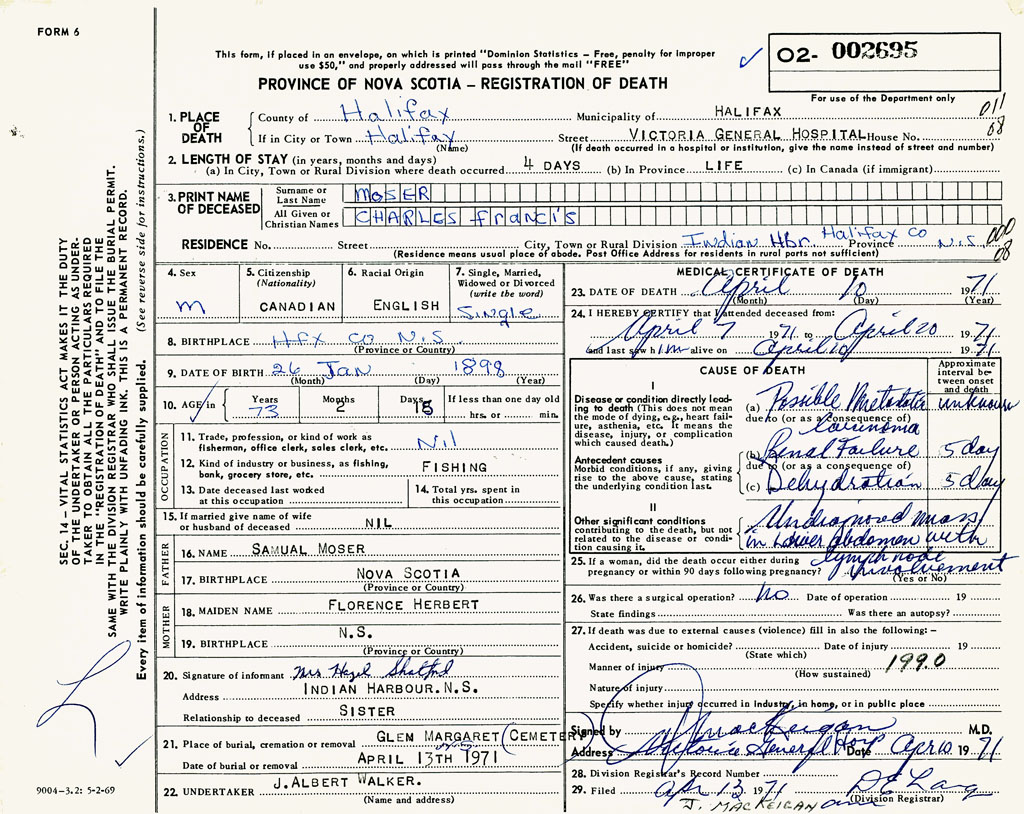 FORM 6
This form, if placed in an envelope, on which is printed "Dominion Statistics – Free, penalty for improper
use $50," and properly addressed will pass through the mail "FREE"
PROVINCE OF NOVA SCOTIA – REGISTRATION OF DEATH
02- 002695
For use of the Department only
011
08
SEC. 14 – VITAL STATISTICS ACT MAKES IT THE DUTY
OF THE UNDERTAKER OR PERSON ACTING AS UNDER-
TAKER TO OBTAIN ALL THE PARTICULARS REQUIRED
IN THE "REGISTRATION OF DEATH" AND TO FILE THE
SAME WITH THE DIVISION REGISTRAR WHO SHALL ISSUE THE BURIAL PERMIT.
WRITE PLAINLY WITH UNFADING INK. THIS IS A PERMANENT RECORD.
Every item of information should be carefully supplied. (See reverse side for instructions.)
1. PLACE OF DEATH
County of Halifax Municipality of HALIFAX
If in City or Town Halifax Street VICTORIA GENERAL HOSPITAL House No.
(Name) (If death occurred in a hospital or institution, give the name instead of street and number)
2. LENGTH OF STAY (in years, months and days)
(a) In City, Town or Rural Division where death occurred 4 DAYS (b) In Province LIFE (c) In Canada (if immigrant)
3. PRINT NAME OF DECEASED
Surname or Last Name MOSER
All Given or Christian Names CHARLES FranciS
RESIDENCE No. Street City, Town or Rural Division Indian Hbr. Halifax Co Province N.S. 000
08
(Residence means usual place of abode. Post Office Address for residents in rural parts not sufficient)
4. Sex M
5. Citizenship (Nationality) CANADIAN
6. Racial Origin ENGLISH
7. Single, Married, Widowed or Divorced (write the word) Single
8. BIRTHPLACE Hfx Co N.S
(Province or Country)
9. DATE OF BIRTH 26 Jan 1898
(Month) (Day) (Year)
10. AGE in Years 73 Months 2 Days 15 If less than one day old hrs. or min.
OCCUPATION
11. Trade, profession, or kind of work as
fisherman, office clerk, sales clerk, etc. Nil
12. Kind of industry or business, as fishing,
bank, grocery store, etc. FISHING
13. Date deceased last worked
at this occupation
14. Total yrs. spent in
this occupation
15. If married give name of wife
or husband of deceased NIL
FATHER
16. NAME SAMUAL MOSER
17. BIRTHPLACE NOVA SCOTIA
(Province or Country)
MOTHER
18. MAIDEN NAME FLORENCE HERBERT
19. BIRTHPLACE N.S.
(Province or Country)
20. Signature of informant Mrs Hazel Shatford
Address INDIAN HARBOUR.N.S.
Relationship to deceased SISTER
21. Place of burial, cremation or removal GLEM MARGARET (CEMETERY
Date of burial or removal APRIL 13TH 1971
22. UNDERTAKER J.ALBERT WALKER.
(Name and address)
9004-3.2: 5-2-69
MEDICAL CERTIFICATE OF DEATH
23. DATE OF DEATH April 10 1971
(Month) (Day) (Year)
24. I HEREBY CERTIFY that I attended deceased from:
April 7 1971 to April 20 1971
and last saw him alive on April 10 1971
CAUSE OF DEATH
Approximate interval between onset and death
I
Disease or condition directly lead-
ing to death (This does not mean
the mode of dying, e.g., heart fail-
ure, asthenia, etc. It means the
disease, injury, or complication
which caused death.)
(a) Possible Metastatic unknown
due to (or as a Consequence of)
Carcinoma
Antecedent causes
Morbid conditions, if any, giving
rise to the above cause, stating
the underlying condition last.
(b) Renal Failure 5 day
due to (or as a consequence of)
(c) Dehydration 5 day
II
Other significant conditions
contributing to the death, but not
related to the disease or condi-
tion causing it.
Undiagnosed mass
in Lower abdomen with
lymph node
involvement
25. If a woman, did the death occur either during
pregnancy or within 90 days following pregnancy?
(Yes or No)
26. Was there a surgical operation? No Date of operation 19
State findings Was there an autopsy?
27. If death was due to external causes (violence) fill in also the following: –
Accident, suicide or homicide? Date of injury 19
(State which)
Manner of injury 199.0
(How sustained)
Nature of injury
Specify whether injury occurred in industry, in home, or in public place
Signed by J MacKeigan M.D.
Address Victoria General Hosp Date Apr 10 1971
28. Division Registrar's Record Number
29. Filed Apr 13 1971 D E Lang
(Division Registrar)
J. MACKEIGAN